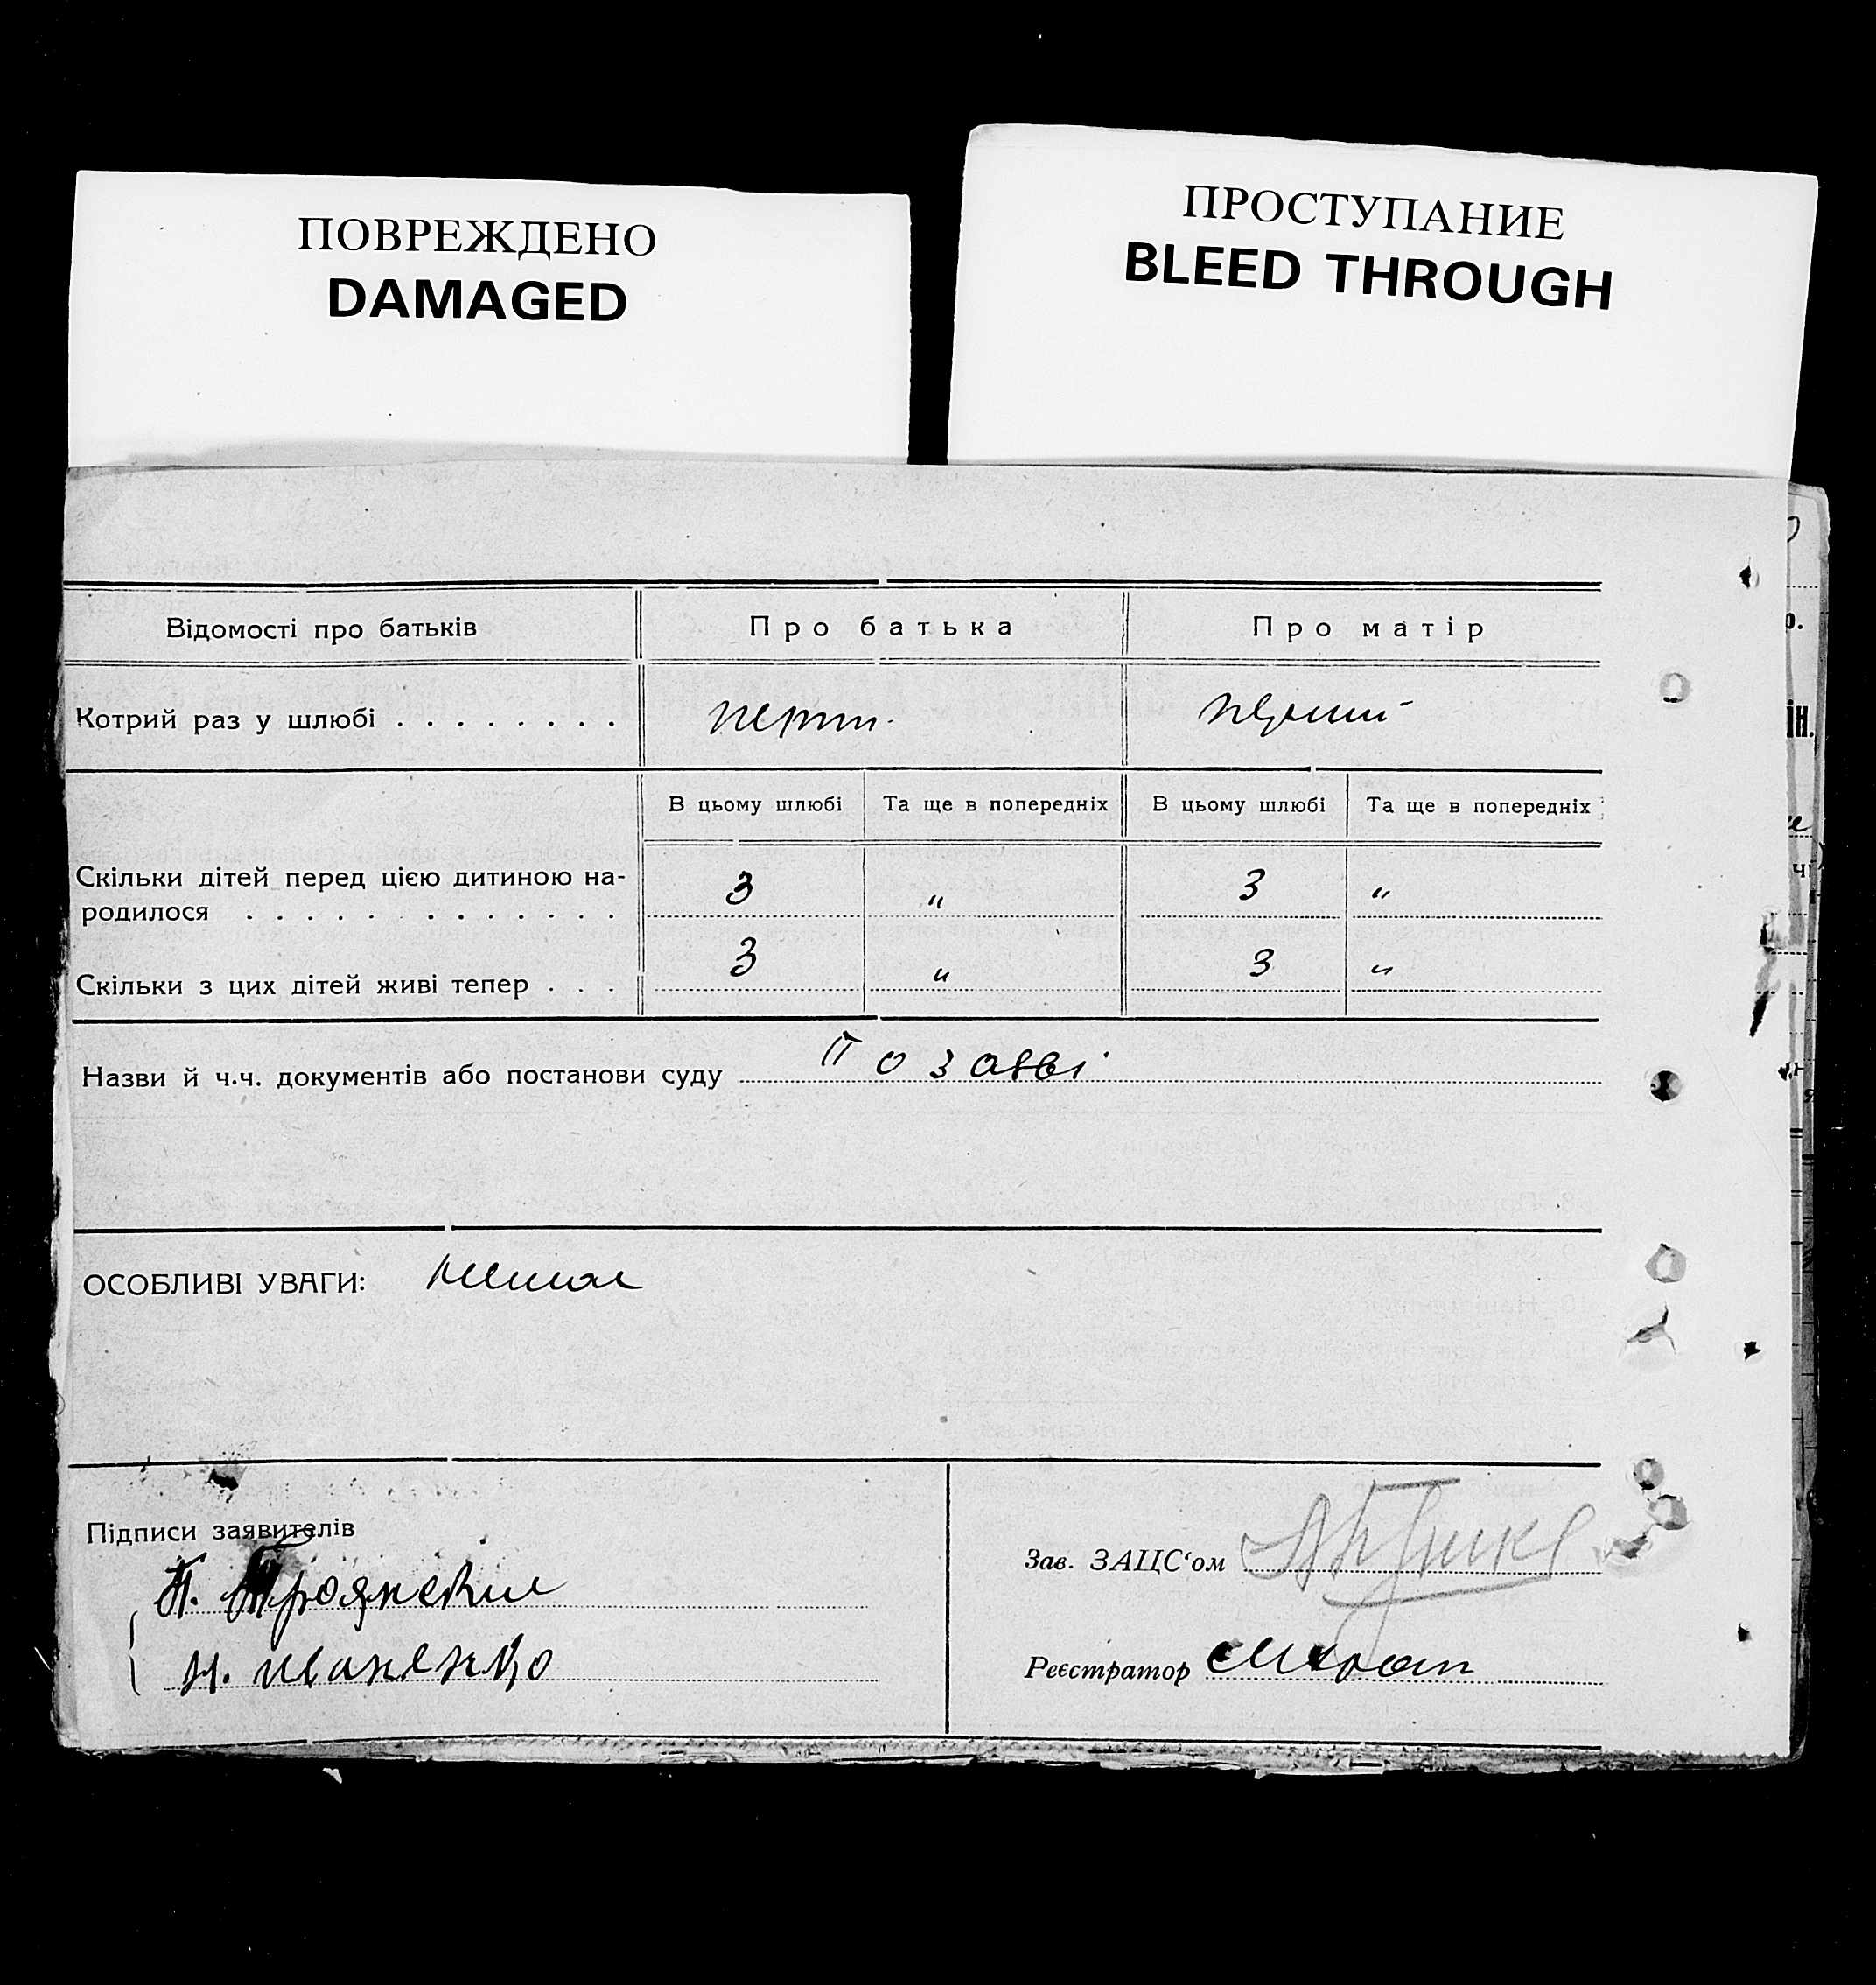 ПОВРЕЖДЕНО
DAMAGED
ПРОСТУПАНИЕ
BLEED THROUGH
Відомості про батьків Про батька Про матір
Котрий раз у шлюбі . . . . . . . . перший
В цьому шлюбі Та ще в попередніх В цьому шлюбі Та ще в попередніх
Скільки дітей перед цією дитиною на-
родилося . . . . . . . . . . . . 3 " 3 "
Скільки з цих дітей живі тепер . . . 3 " 3 "
Назви й ч.ч. документів або постанови суду По заяві
ОСОБЛИВІ УВАГИ: немає
Підписи заявителів
П. Троянский
И. Иваненко
Зав. ЗАЦС‘ом
Реєстратор